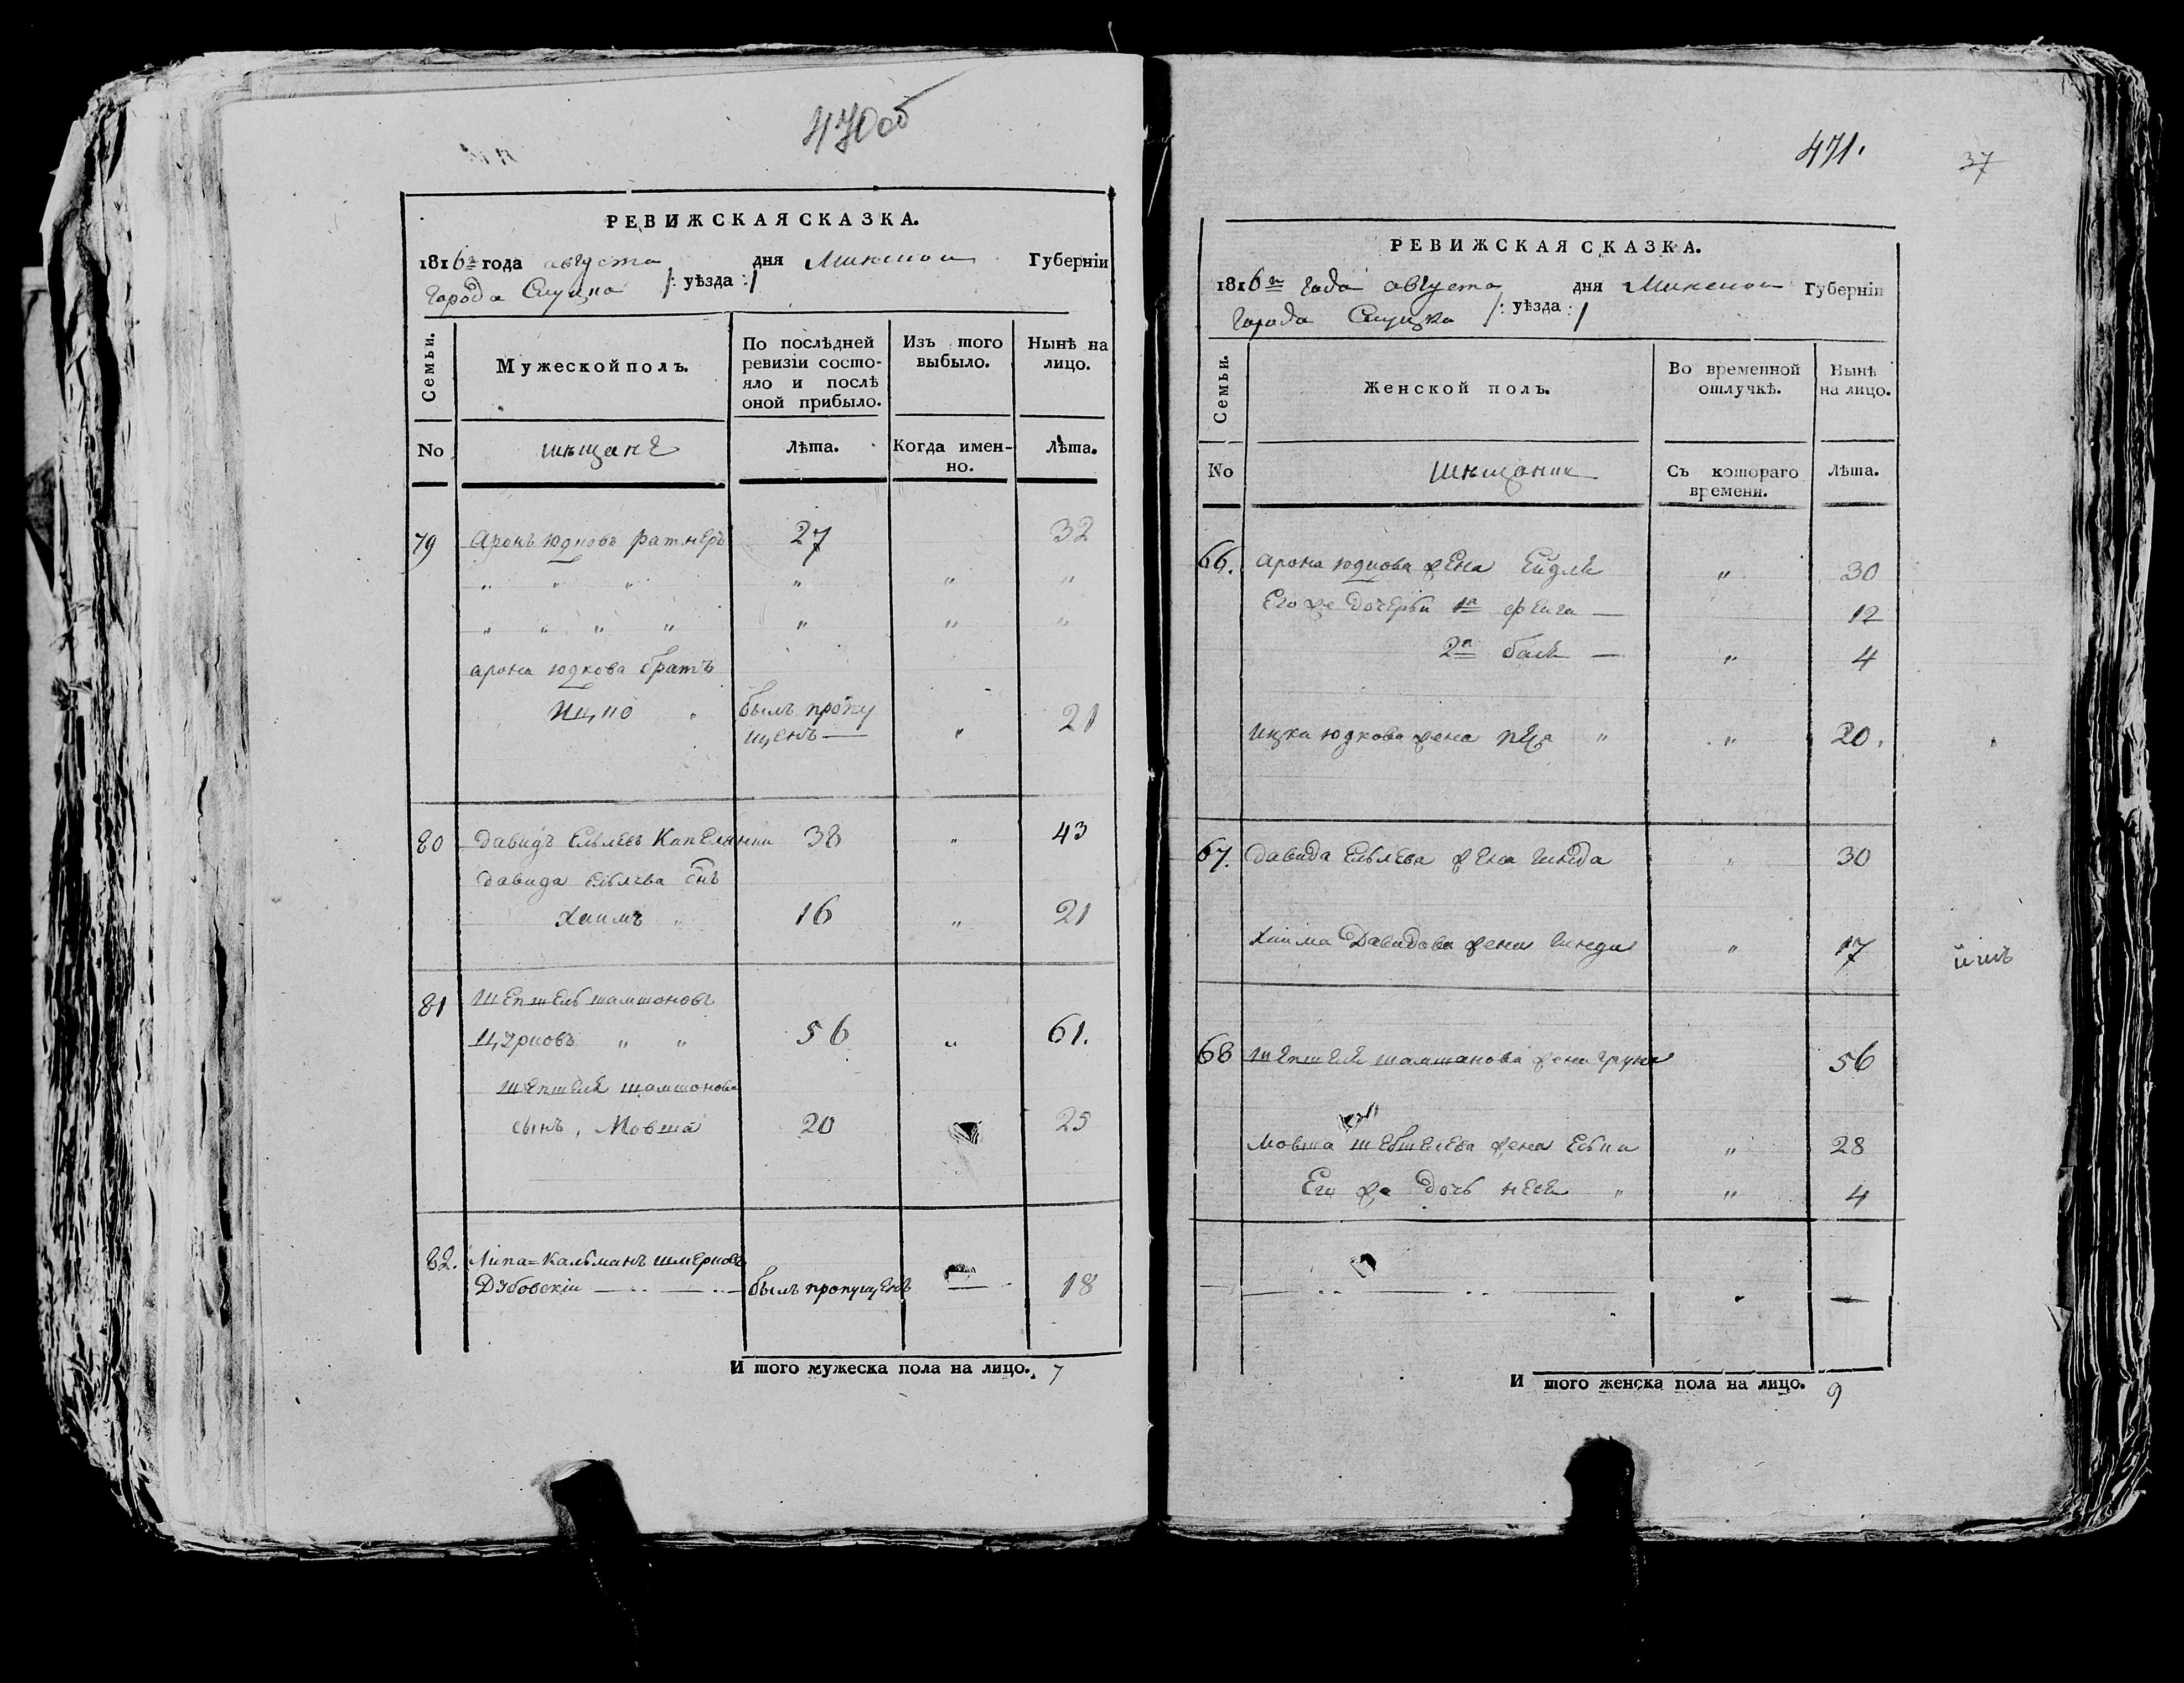 470об
РЕВИЖСКАЯ СКАЗКА.
1816го года августа дня Минской Губерніи
города Слуцка /: уѣзда :/
Семьи.
Мужеской полъ.
По послѣдней ревизіи состо-
яло и послѣ
оной прибыло.
Изъ того
выбыло.
Нынѣ на
лицо.
No
мѣщане
Лѣта.
Когда имен-
но.
Лѣта.
79 Аронъ юдковъ ратнеръ 27 32
" " " " " "
" " " " " " "
арона юдкова братъ
Ицко " былъ пропу
щенъ — " 21
80 Давидъ Ельевъ 38 " 43
Давида Ельева снъ
Хаимъ " 16 " 21
81 Шепшель шамшоновъ
" " 56 " 61.
Шепшеля шамшонова
сынъ, Мовша 20 25
82. Липа=Кальманъ шмерковъ
былъ пропущенъ — 18
И того мужеска пола на лицо. 7
471. 37
РЕВИЖСКАЯ СКАЗКА.
1816го года августа дня Минской Губерніи
города Слуцка /: уѣзда :/
Семьи.
Женской полъ.
Во временной
отлучкѣ.
Нынѣ
на лицо.
No
Съ котораго
времени.
Лѣта.
66. арона юдкова жена " 30
Его же дочерьи 1я фейга — 12
2я — " 4
ицка юдкова жена " " 20.
67. Давида Ельева жена " 30
Хаима Давидова жена " 17
68 Шепшеля шамшанова жена груня 56
Мовша жена " 28
Его же дочь " " 4
—
И того женска пола на лицо. 9